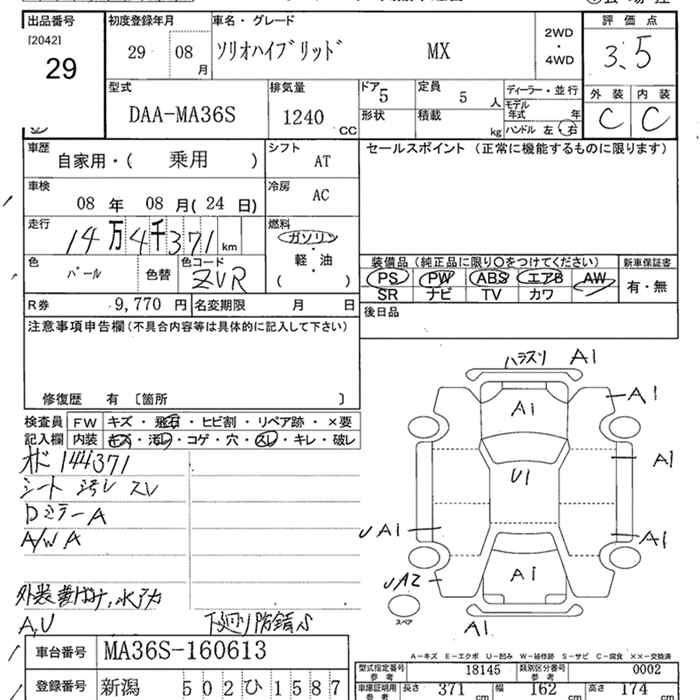 出品番号 初度登録年月 車名・グレード 2WD・4WD 評価点
[2042] 29 29 08月 ソリオハイブリッド MX 3.5
型式 排気量 ドア 5 定員 5人 ディーラー・並行 外装 内装
DAA-MA36S 1240CC 形状 積載 kg モデル年式 年 C C
ハンドル 左・右
車歴 自家用・(乗用) シフト AT セールスポイント (正常に機能するものに限ります)
車検 08年 08月(24日) 冷房 AC
走行 14万4千371km 燃料 ガソリン
軽・油
( )
色 パール 色替 色コード ZVR
装備品(純正品に限り○をつけてください) 新車保証書
PS PW ABS エアB AW 有・無
SR ナビ TV カワ
R券 9,770円 名変期限 月 日 後日品
注意事項申告欄(不具合内容等は具体的に記入して下さい)
修復歴 有 〔箇所 〕
検査員記入欄 FW キズ・飛石・ヒビ割・リペア跡・×要
内装 キズ・汚レ・コゲ・穴・スレ・キレ・破レ
オド144371
シート 汚レ スレ
Dミラー A
A/W A
A,U
下廻り防錆
ハラスリ A1
A1
A1
A1
U1
A1
UA1
A1
UA2
A1
A1
スペア
車台番号 MA36S-160613
登録番号 新潟 502 ひ 1587
A-キズ E-エクボ U-凹み W-補修跡 S-サビ C-腐食 XX-交換済
型式指定番号 参考 18145 類別区分番号 参考 0002
車庫証明用 参考 長さ 371cm 幅 162cm 高さ 174cm